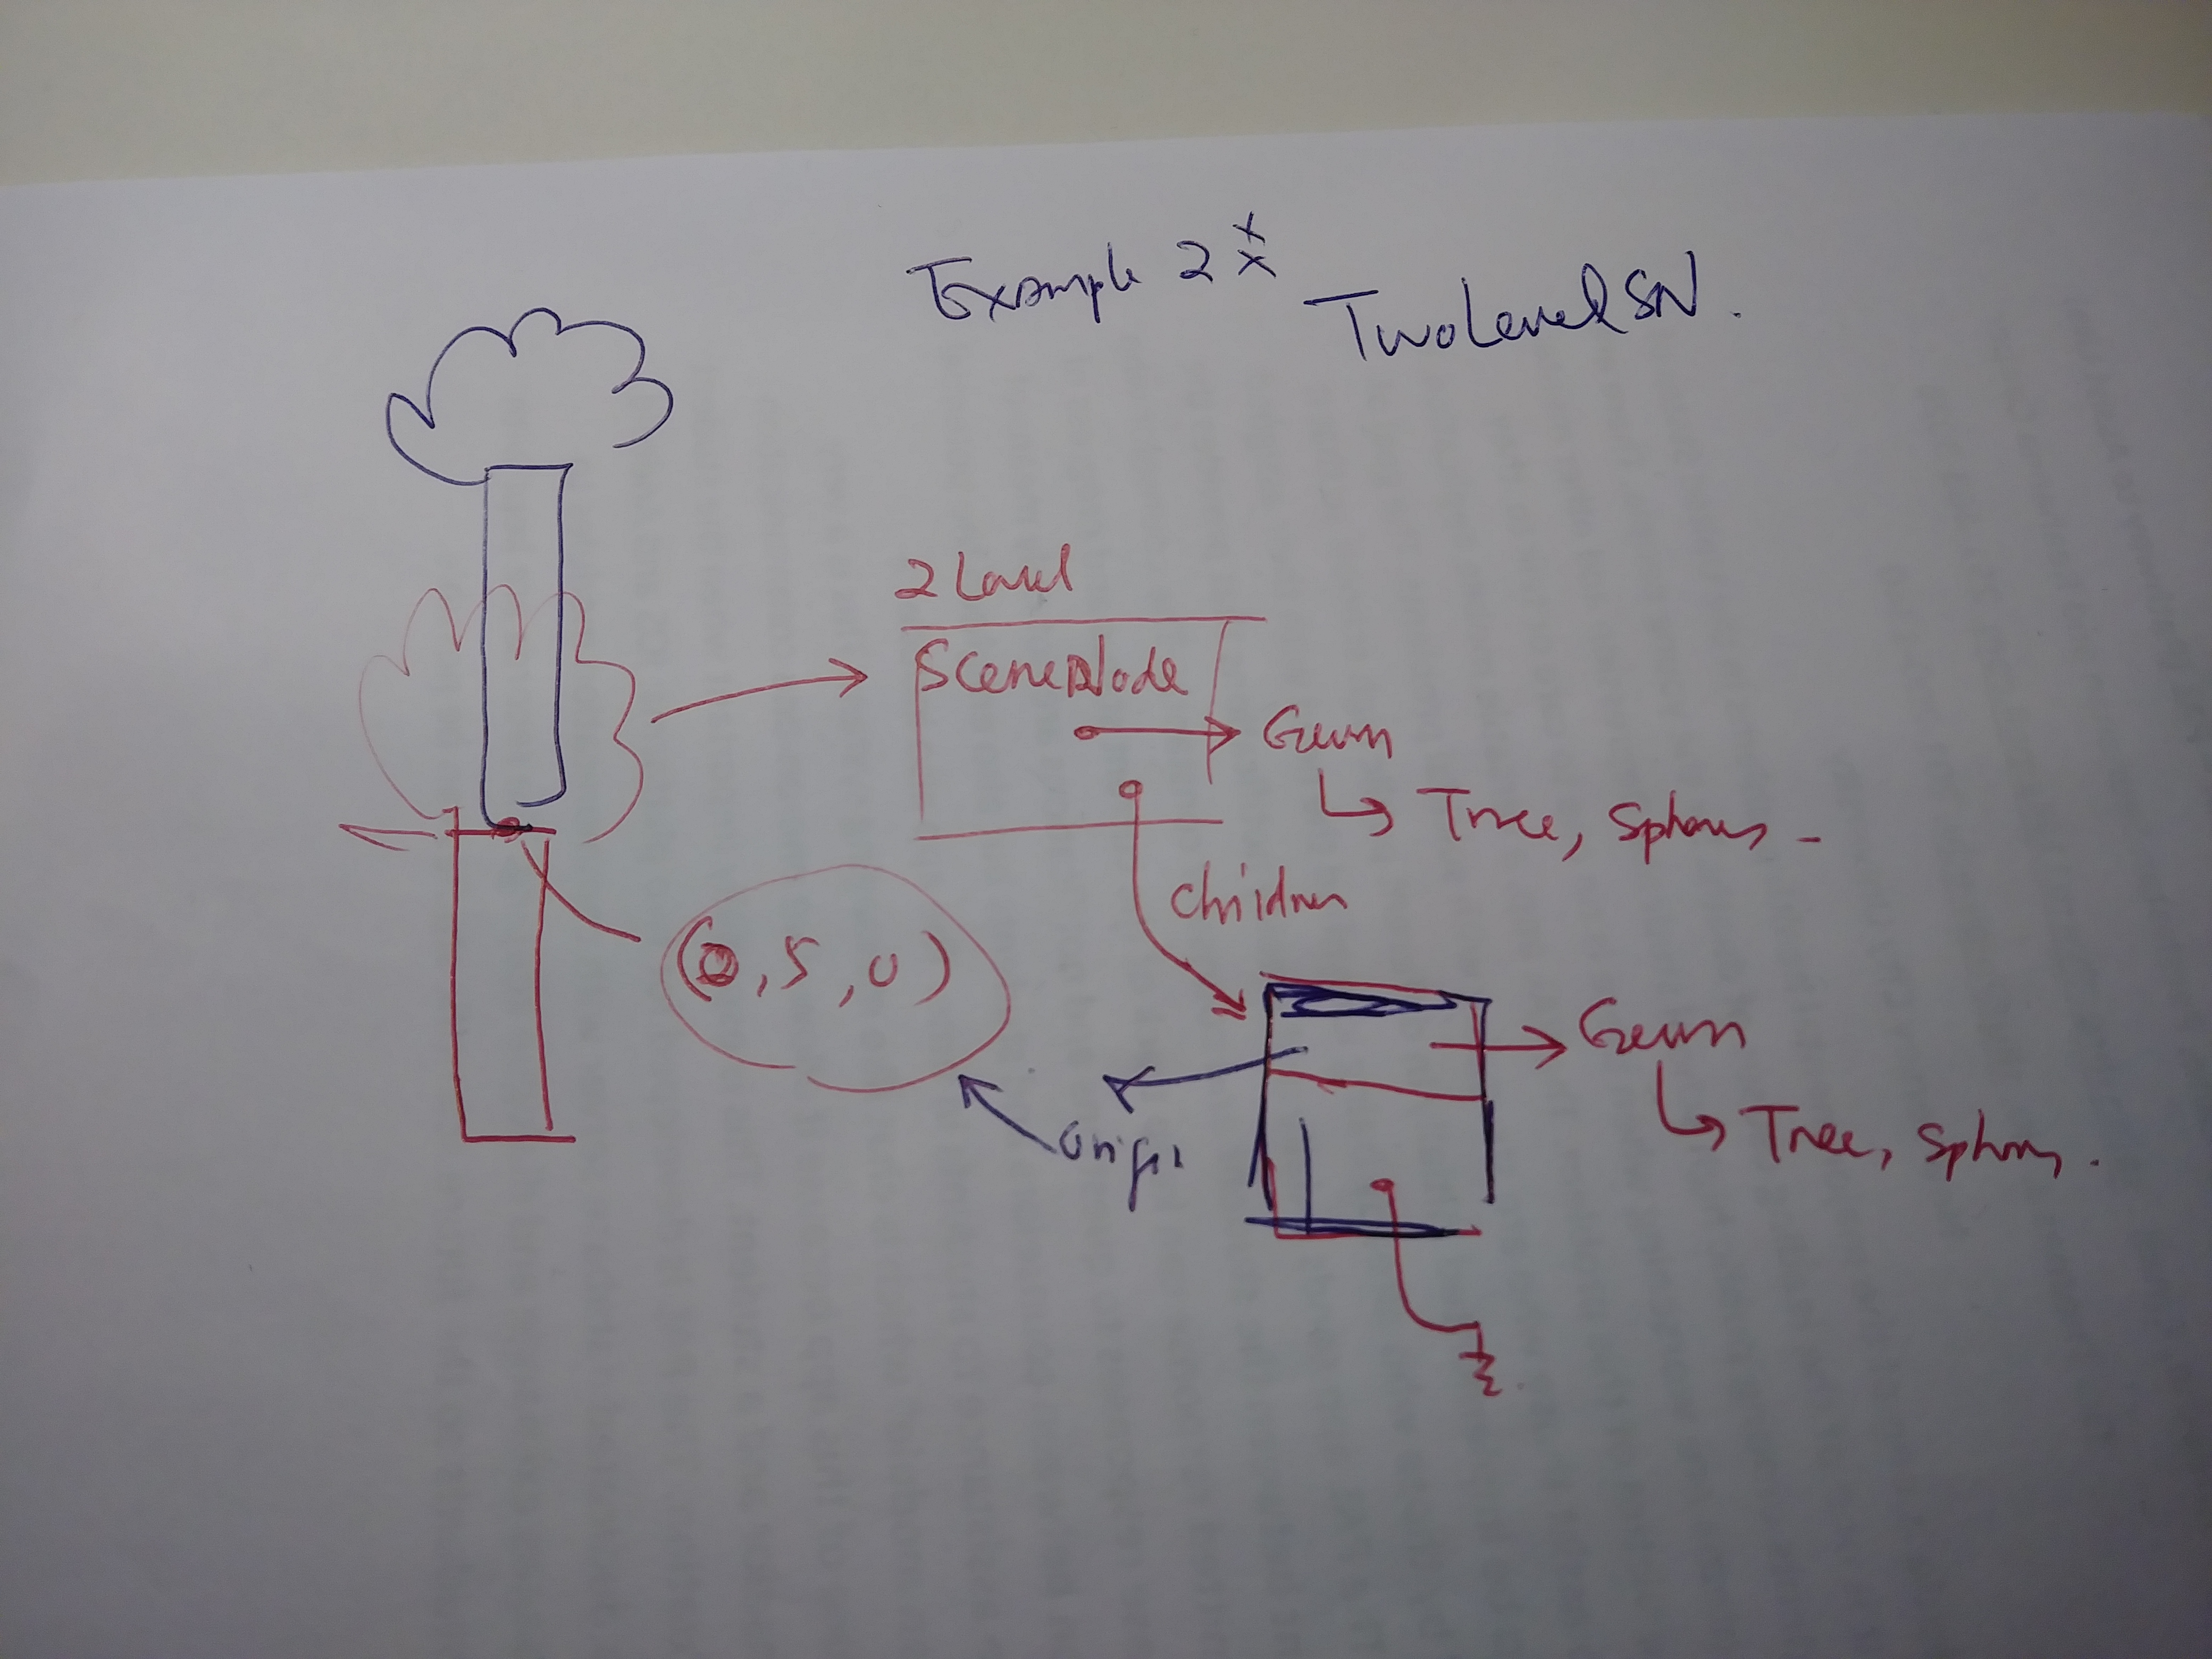 Example 2
TwoLevelSN.
2 Level
SceneNode
Geom
Tree, Spheres
children
(0, 5, 0)
Geom
origin
Tree, Spheres.